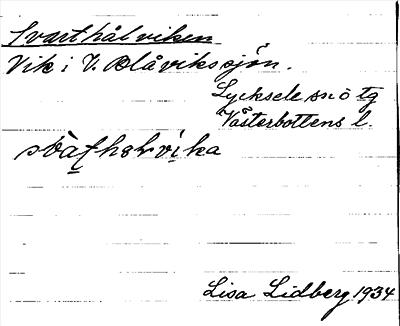 Svarthålviken
Vik i V. Blåvikssjön.
Lycksele sn o tg
Västerbottens l.
Lisa Lidberg 1934